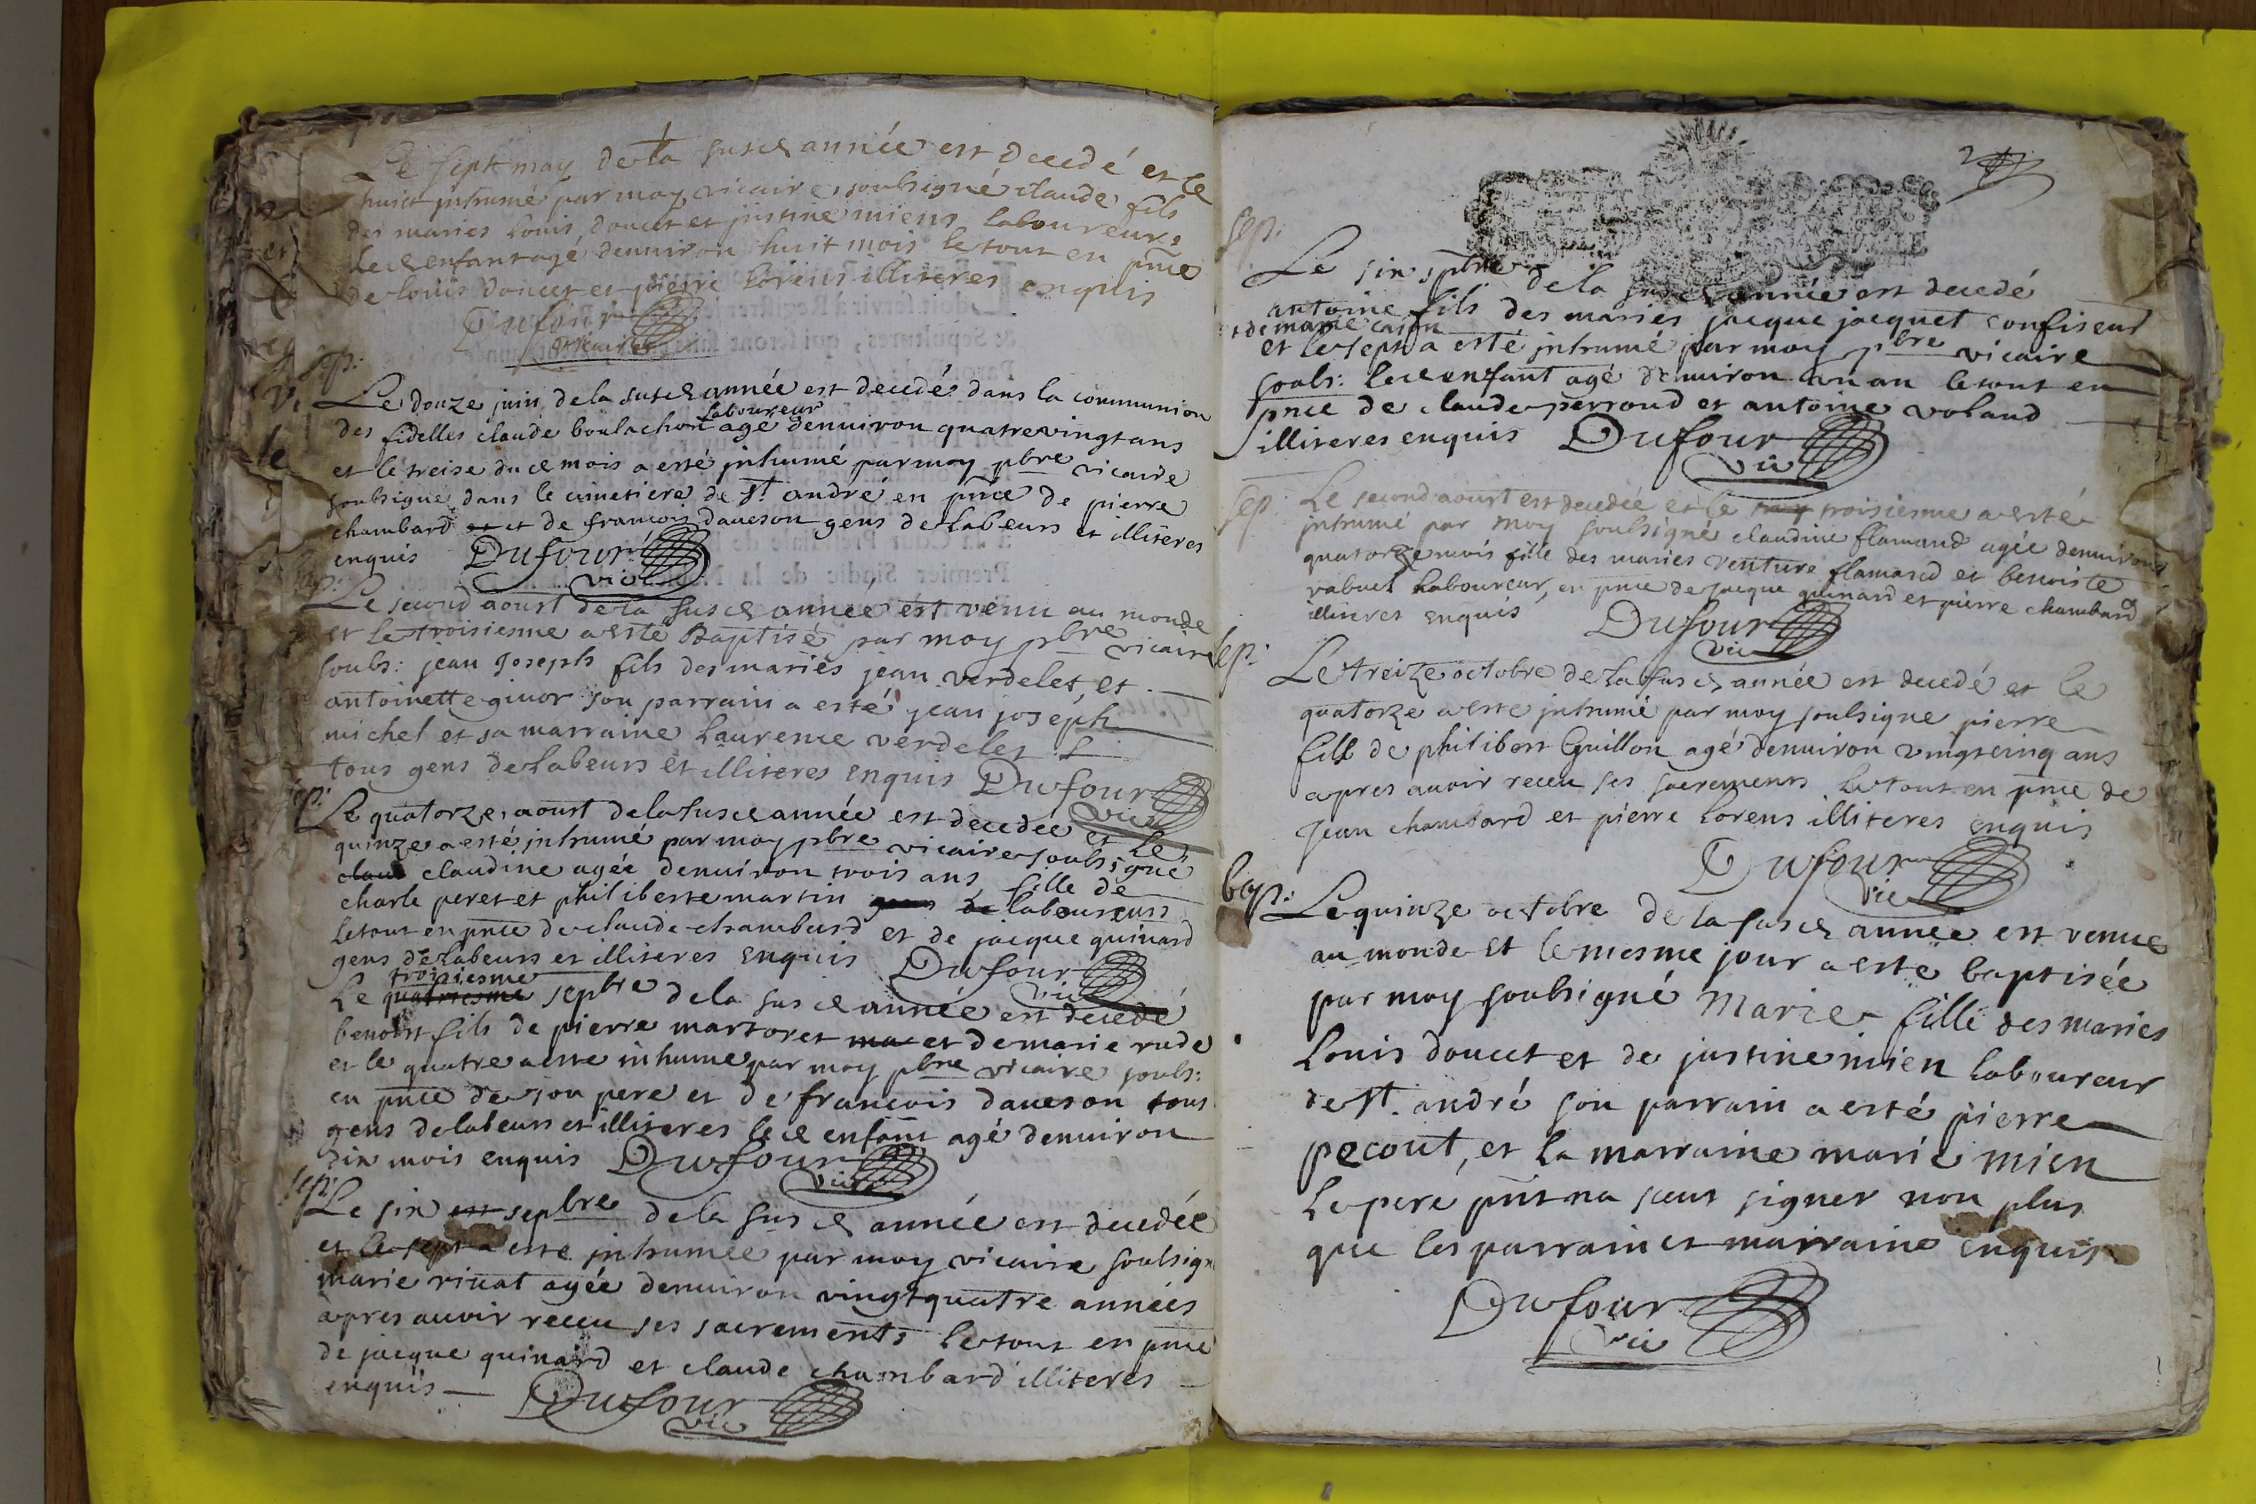 Le sept may de la susd année est decedé et le
huict inhumé par moy vicaire soubsigné claude fils
des maries Louis doucet et justine miens laboureurs
led enfant agé denuiron huit mois le tout en pnce
de louis doucet et pierre Lorens illiteres enquis
Dufour
vicaire
sep:
Le douze juin de la susd année est decedé dans la communion
laboureur
des fidelles claude boulachon agé denuiron quatrevingt ans
et le treise dud mois a esté inhumé par moy pbre vicaire
soubsigné dans le cimetiere de st andré en pnce de pierre
chambard et et de francois daueson gens de labeurs et illiteres
enquis Dufour
vic
Le second aoust de la susd année est venu au monde
et le troisiesme a esté Baptisé par moy pbre vicaire
soubs: jean Joseph fils des mariés jean verdelet, et
antoinette giuor son parrain a esté jean joseph
michel et sa marraine Laurence verdelet
tous gens de labeurs et illiteres enquis Dufour
vic
sep:
Le quatorze aoust de la susd année est decedée et le
quinze a esté inhumé par moy pbre vicaire soubsigné
claud claudine agée denuiron trois ans fille de
charle peret et philiberte martin gens de laboureurs
le tout en pnce de claude chambard et de jacque quinard
gens de labeurs et illiteres enquis Dufour
vic
troisiesme
Le quatriesme sepbre de la susd année est decedé
benoist fils de pierre martoret ma et de marie rude
et le quatre a este inhume par moy pbre vicaire soubs:
en pnce de son pere et de francois daueson tous
gens de labeurs et illiteres led enfant agé denuiron
dix mois enquis Dufour
vic
sep:
Le six est sepbre de la susd année est decedée
et le sept a este inhumée par moy vicaire soubsigné
marie riuat agée denuiron vingt quatre années
apres auoir receu ses sacrements le tout en pnce
de jacque quinard et claude chambard illiteres
enquis Dufour
vic
sep:
Le six spbre de la susd année est decedé
antoine fils des mariés jacque jacquet confiseur
et de marie
et le sept a esté inhumé par moy pbre vicaire
soubs: led enfant agé denuiron un an le tout en
pnce de claude perroud et antoine voland
illiteres enquis Dufour
vic
sep:
Le second aoust est decedée et le troisiesme a esté
inhumé par moy soubsigné claudine flamand agée denuiron
quatorze mois fille des maries venture flamand et benoiste
vabuet laboureur, en pnce de jacque quinard et pierre chambard
illiteres enquis Dufour
vic
sep:
Le treize octobre de la susd année est decedé et le
quatorze a este inhumé par moy soubsigné pierre
fils de philibert Guillon agé denuiron vingt cinq ans
apres auoir receu ses sacrements le tout en pnce de
Jean chambard et pierre Lorens illiteres enquis
Dufour
vic
bap:
Le quinze octobre de la susd année est venue
au monde et le mesme jour a esté baptisée
par moy soubsigné Marie fille des maries
Louis doucet et de justine mien laboureur
de st. andré son parrain a esté pierre
pecout, et la marraine marie mien
le pere pnt na sceut signer non plus
que les parrain et marraine enquis
Dufour
vic